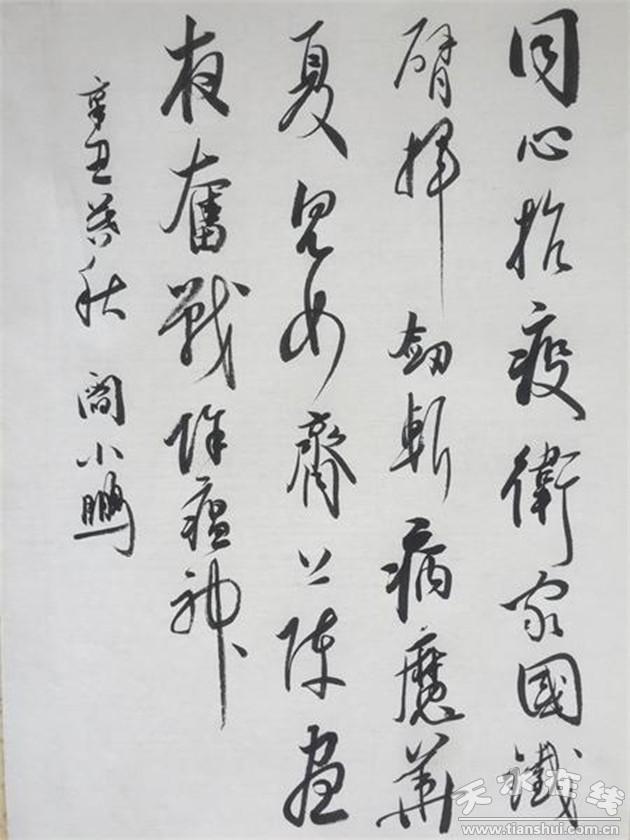 同心抗疫衛家國鐵
臂揮劍斬病魔華
夏兒女齊上陣晝
夜奮戰除瘟神
辛丑暮秋 閻小鵬
天水在线
www.tianshui.com.cn